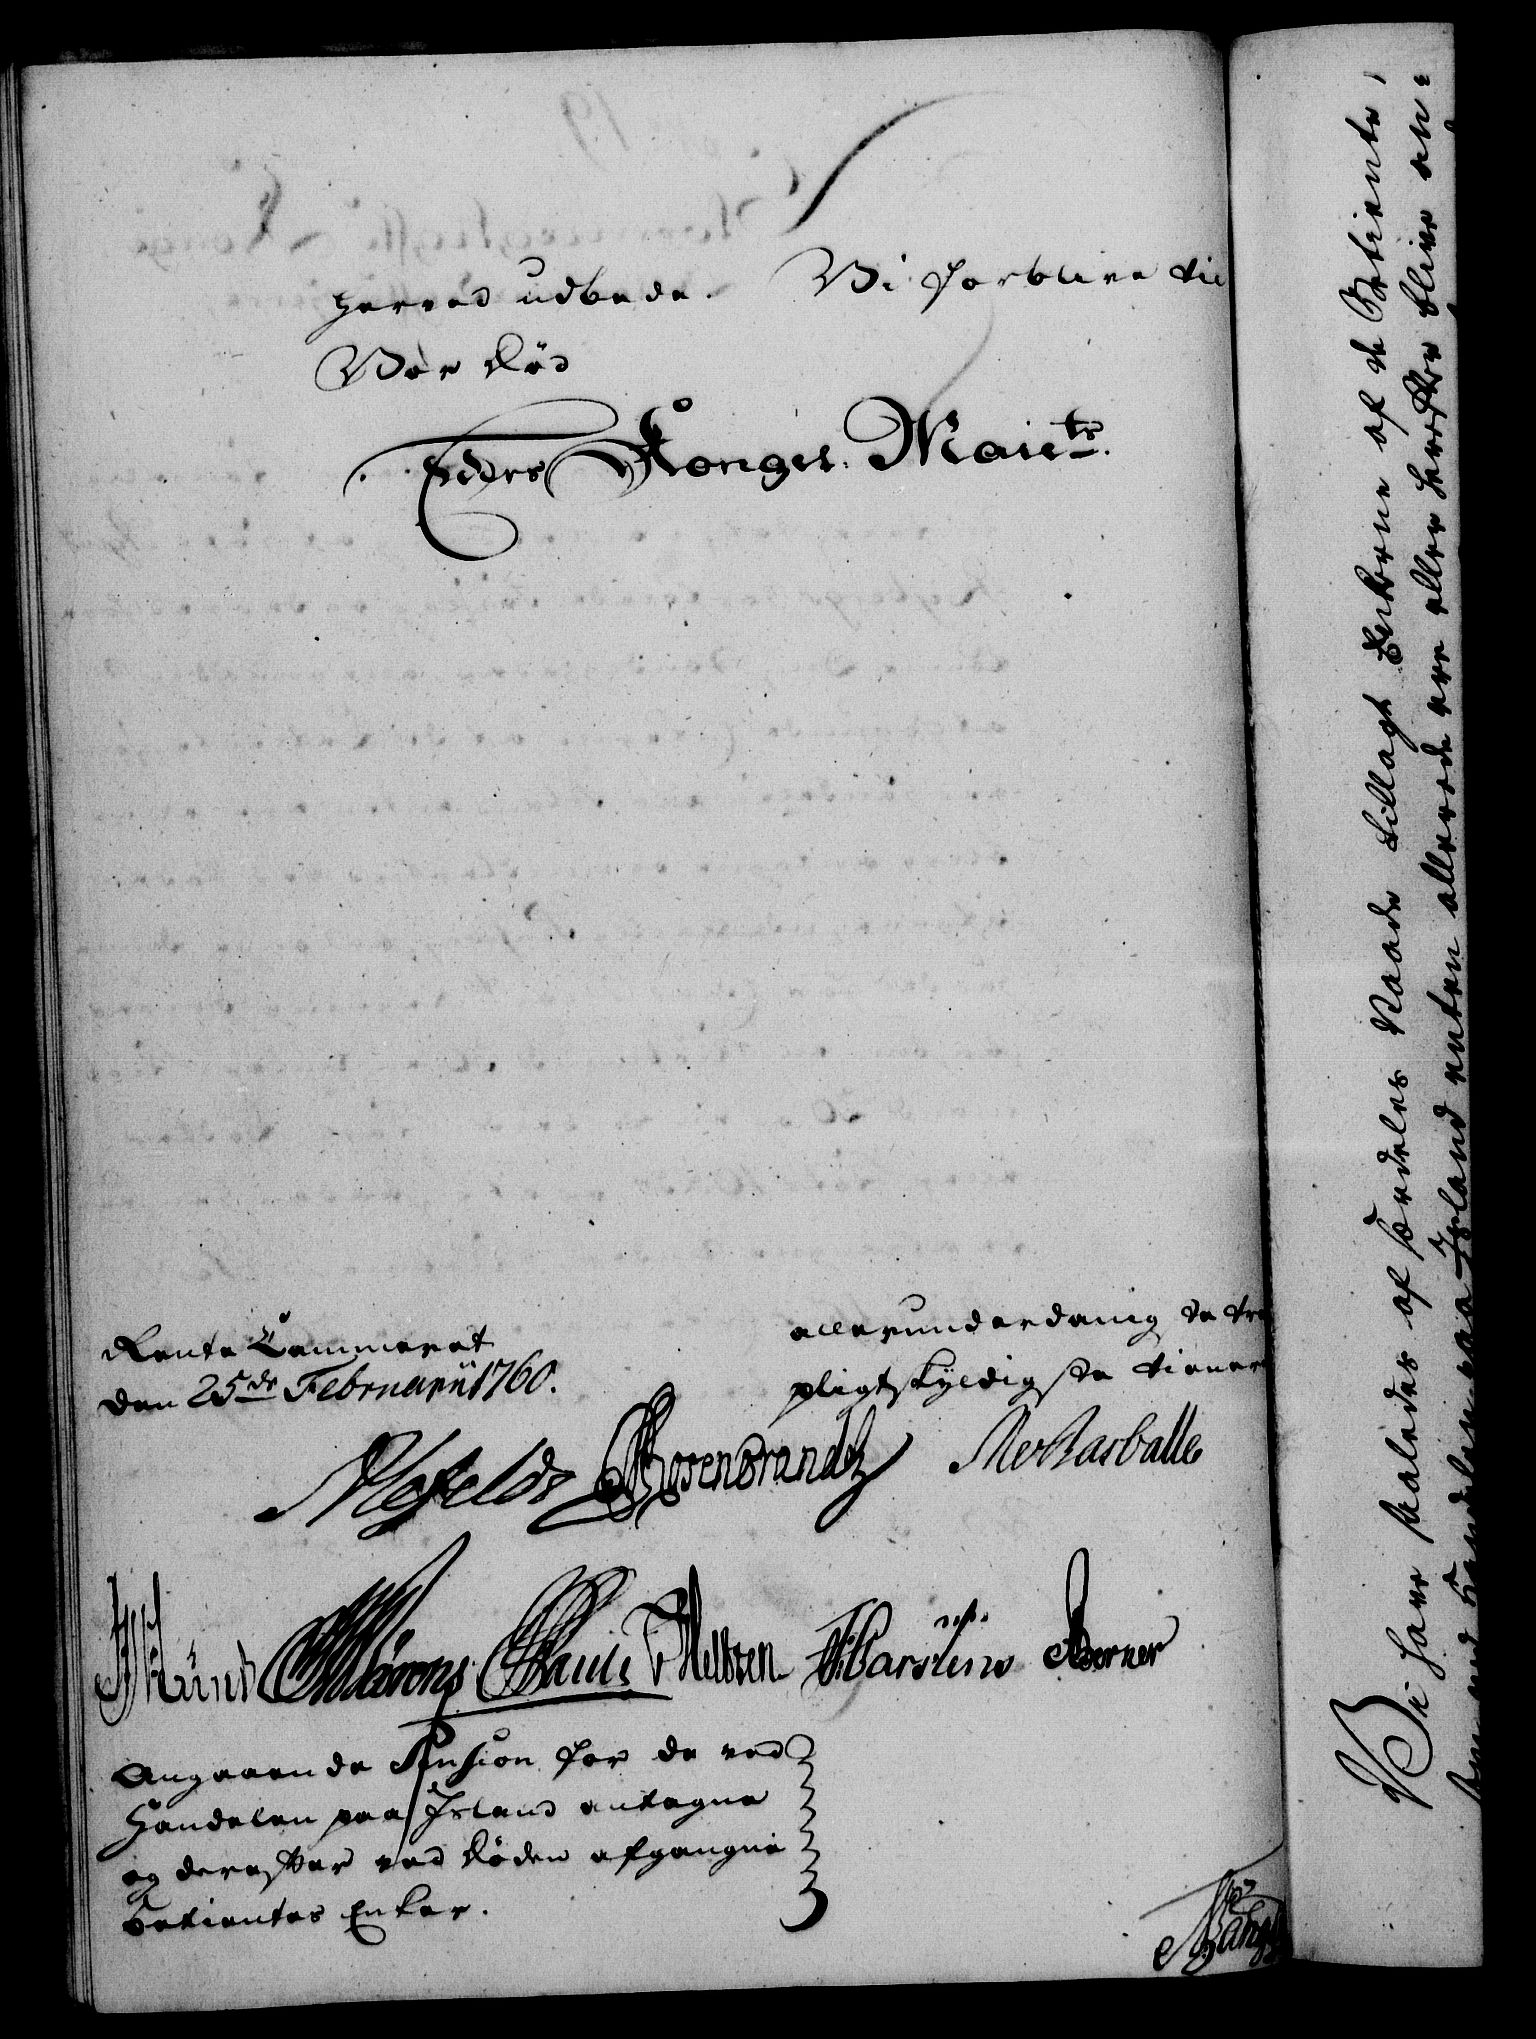 herved udbede. Vi forblive til
Vor Død
Eders Kongel. Maiets.
Rente Cammeret
den 25de Februarii 1760.
allerunderdanigste tro
pligtskyldigste tienere
Rosenbrandtz
Barballe
Pauli
Karstens
Berner
Angaaende Pension for de ved
Handelen paa Island antagne
og derefter ved Døden afgangne
Betientes Enker.
Vi have saaledes af særdeles Naade tillagt Enkerne af de Betiente,
som ved Handelen paa Island enten allerede ere eller herefter blive an-